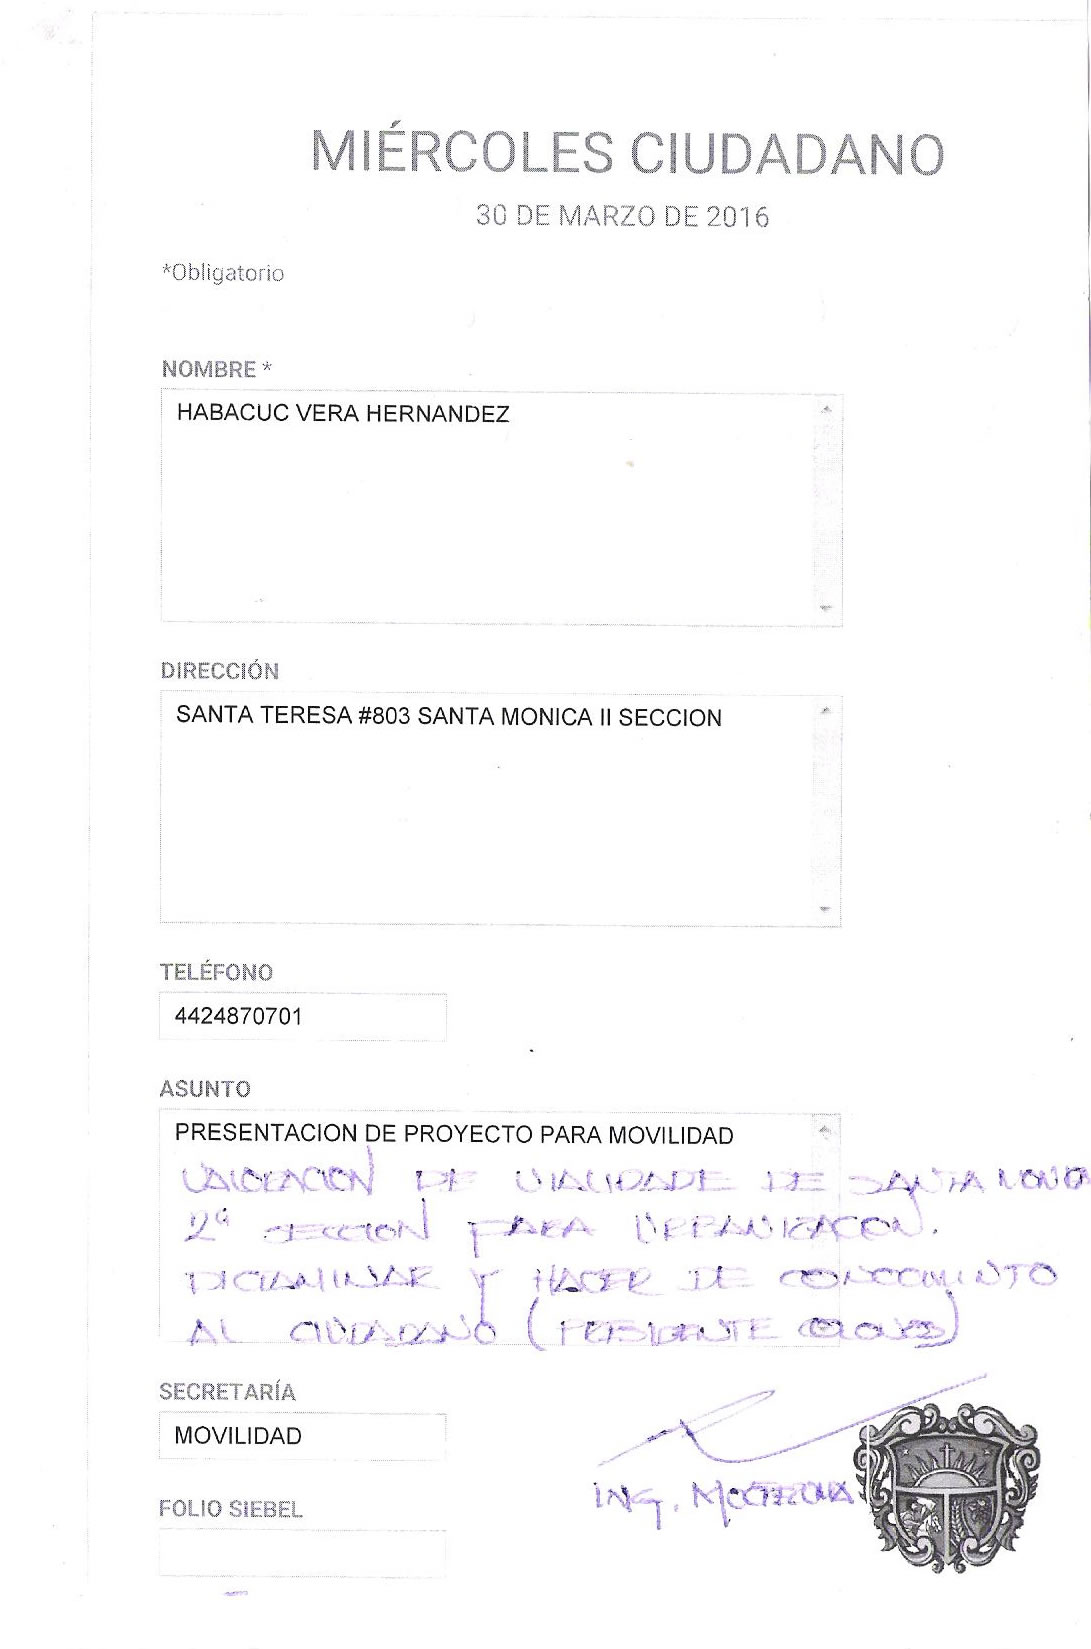 MIÉRCOLES CIUDADANO
30 DE MARZO DE 2016
*Obligatorio
NOMBRE *
HABACUC VERA HERNANDEZ
DIRECCIÓN
SANTA TERESA #803 SANTA MONICA II SECCION
TELÉFONO
4424870701
ASUNTO
PRESENTACION DE PROYECTO PARA MOVILIDAD
DE VIALIDADE DE SANTA MONICA
2ª SECCION PARA URBANIZACON.
DICTAMINAR Y HACER DE
AL CIUDADANO (PRESIDENTE COLONOS)
SECRETARÍA
MOVILIDAD
ING. MOCTEZUMA
FOLIO SIEBEL